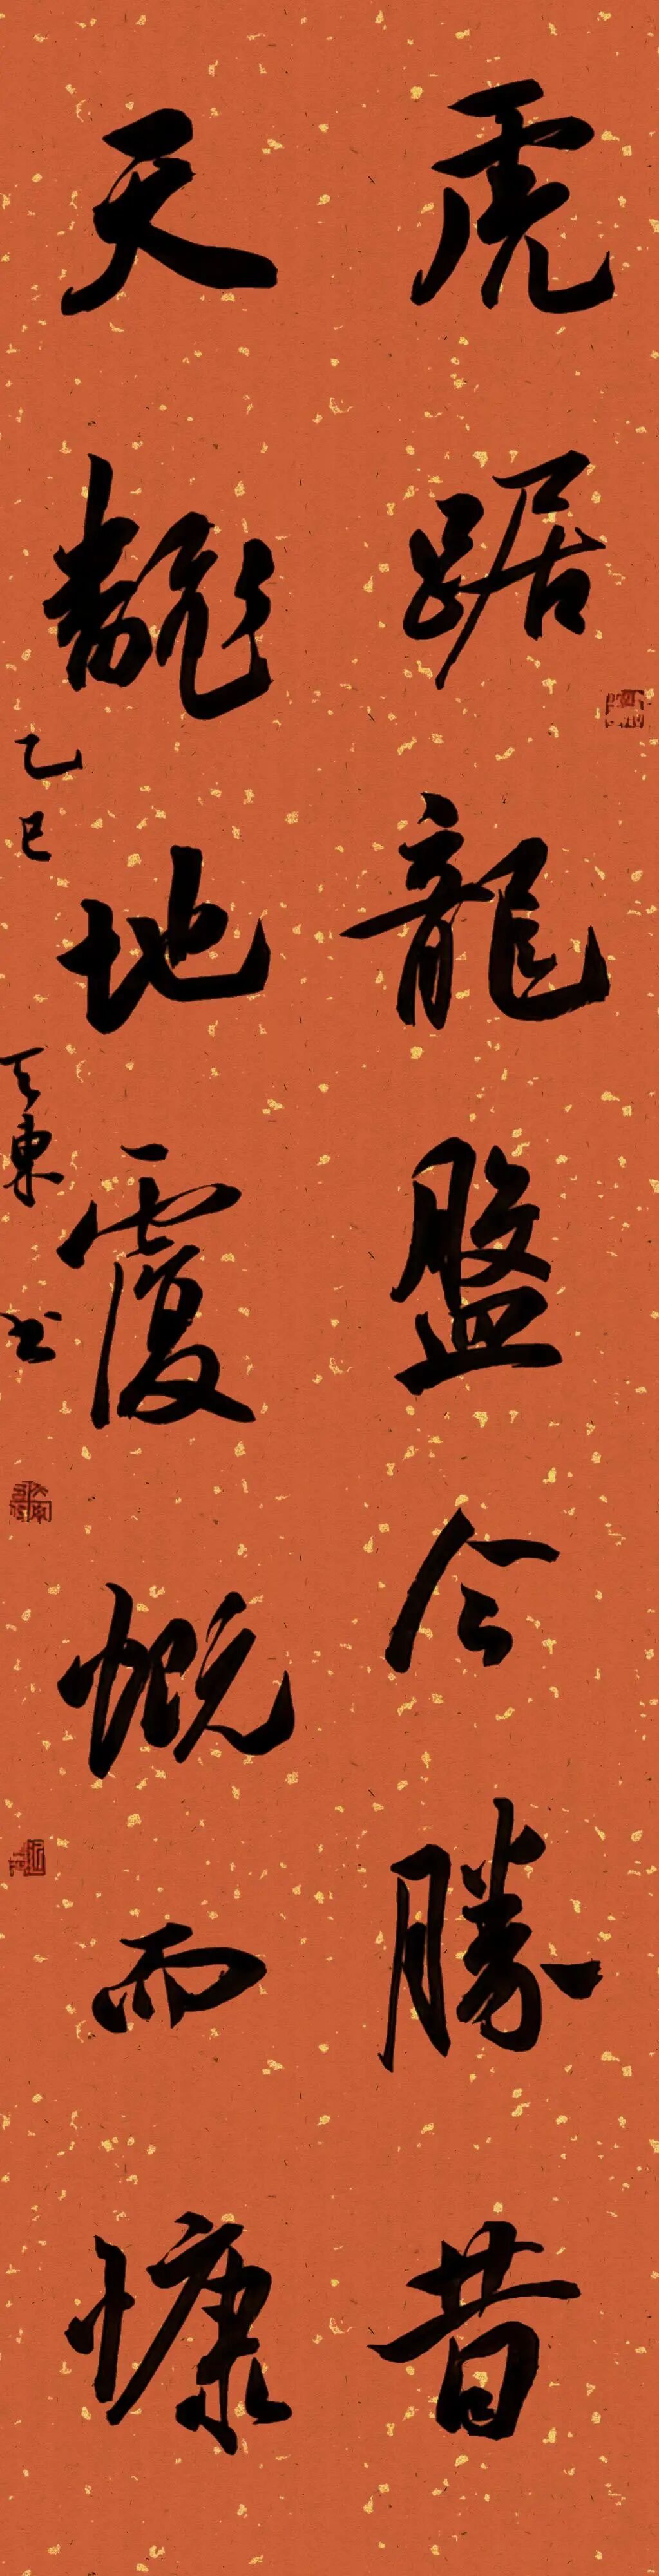 虎踞龍盤今勝昔
天翻地覆慨而慷
乙巳
天東書